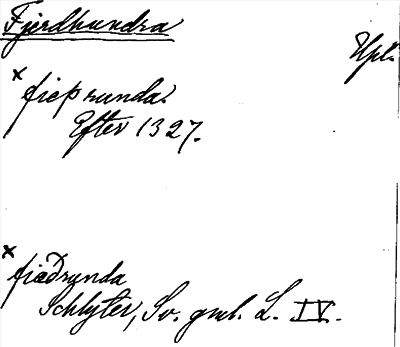 Fjerdhundra
Upl.
× fiæþrunda.
Efter 1327.
× fiæðrunda
Schlyter, Sv. gml. L. IV.